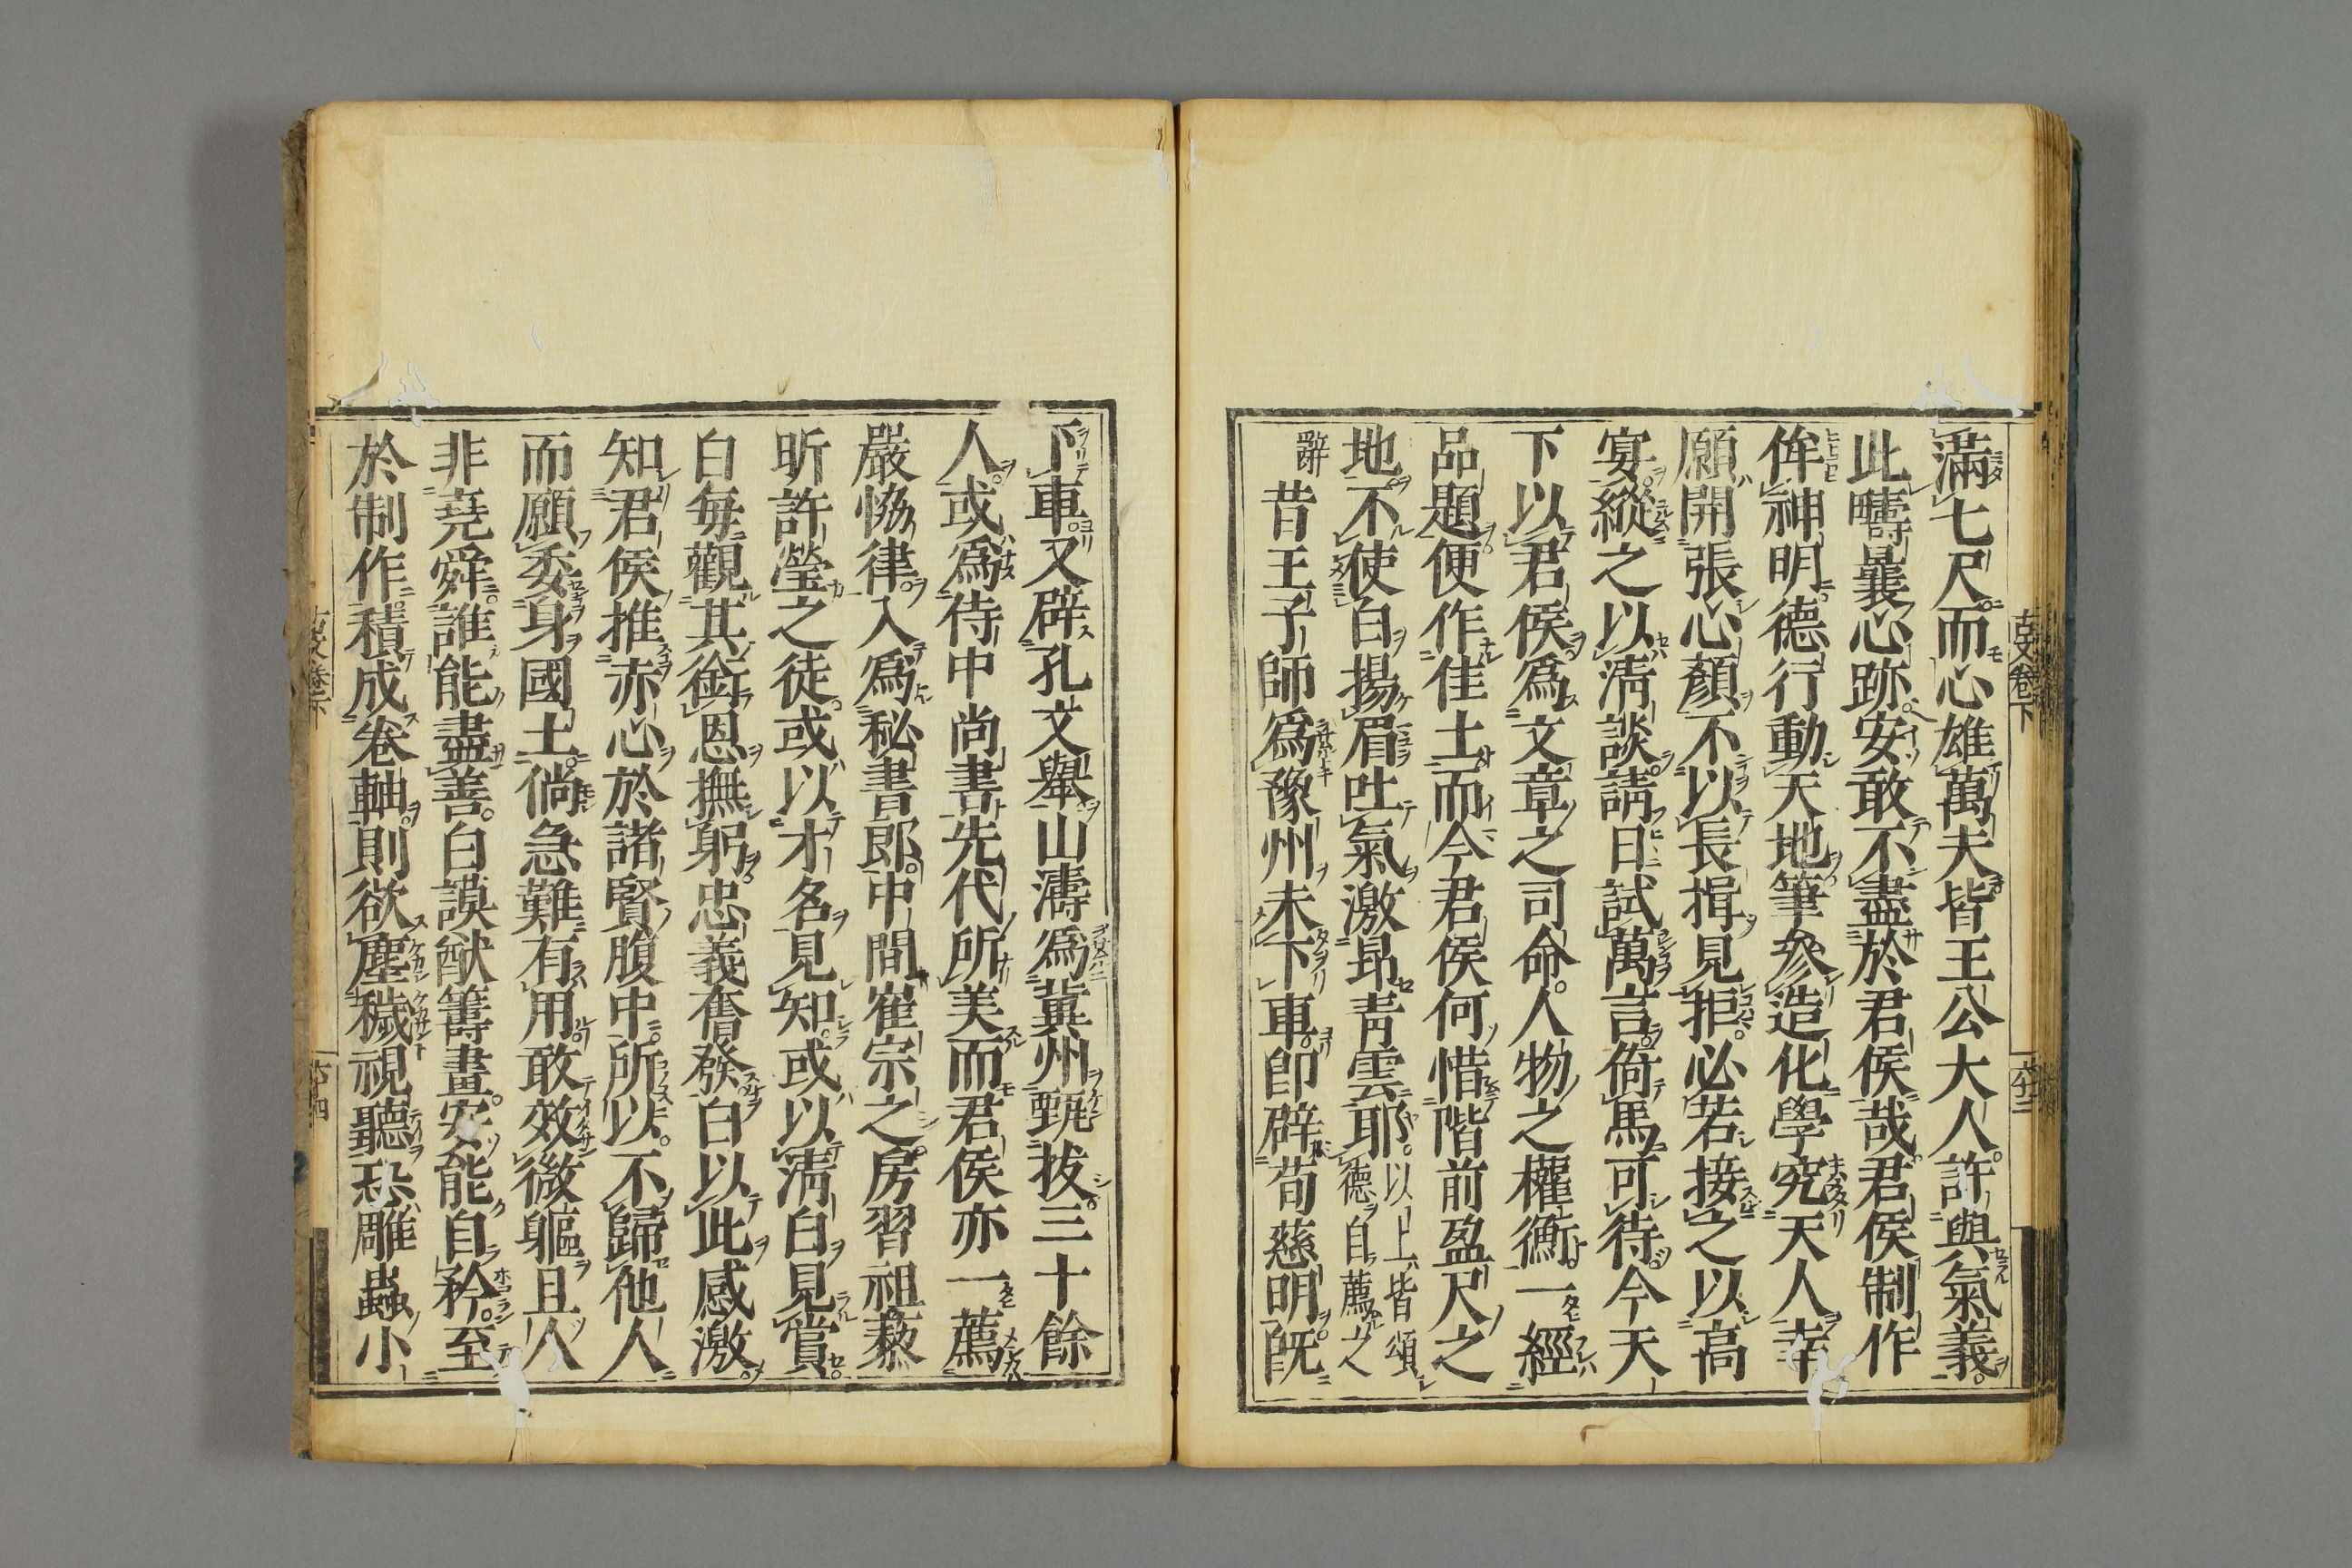 滿七尺而心雄萬夫皆王公大人許與氣義
此疇曩心跡安敢不盡於君侯哉君侯制作
侔神明德行動天地筆參造化學究天人幸
願開張心顏不以長揖見拒必若接之以高
宴縱之以淸談請日試萬言倚馬可待今天
下以君侯爲文章之司命人物之權衡一經
品題便作佳士而今君侯何惜階前盈尺之
地不使白揚眉吐氣激昻靑雲耶以上皆頌德自薦之
辭昔王子師爲豫州未下車卽辟荀慈明旣
下車又辟孔文舉山濤爲冀州甄拔三十餘
人或爲侍中尚書先代所美而君侯亦一薦
嚴恊律入爲秘書郎中間崔宗之房習祖藜
昕許瑩之徒或以才名見知或以淸白見賞
白每觀其銜恩撫躬忠義奮發白以此感激
知君侯推赤心於諸賢腹中所以不歸他人
而願委身國士倘急難有用敢效微軀且人
非堯舜誰能盡善白謨猷籌畫安能自矜至
於制作積成卷軸則欲塵穢視聽恐雕蟲小
古文卷下
六十三
古文卷下